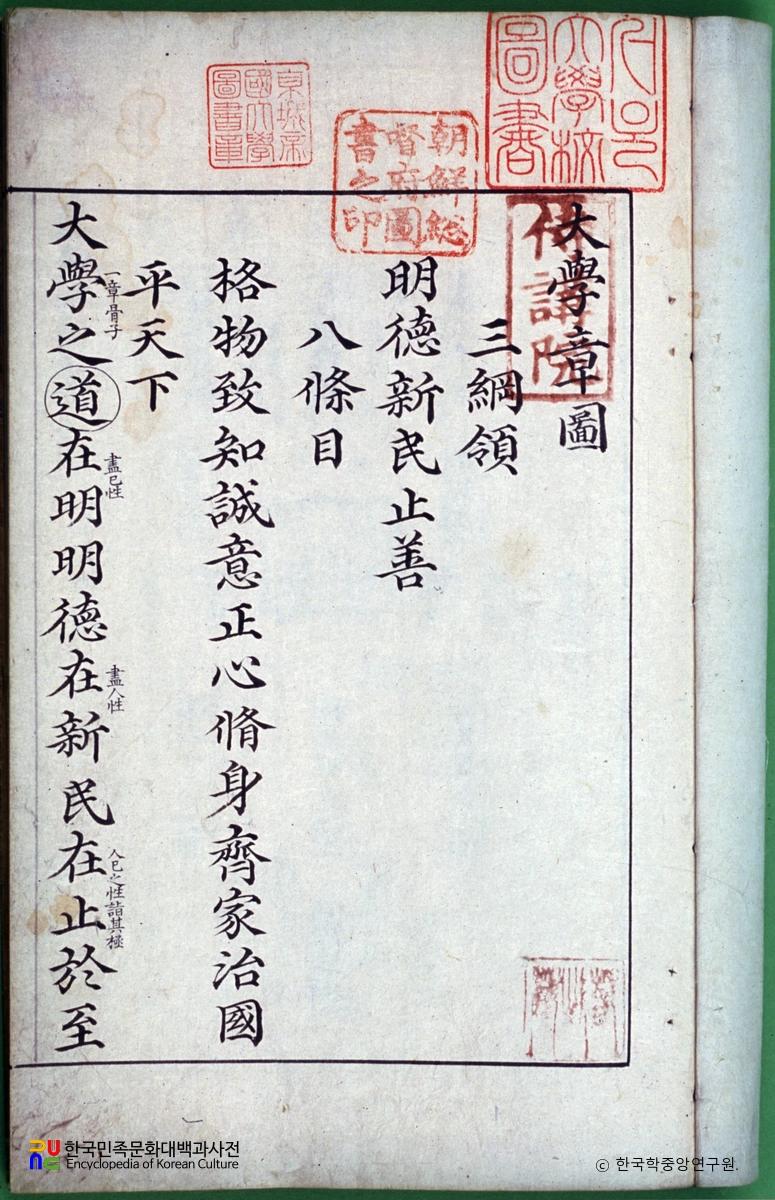 大學章圖
三綱領
明德新民止善
八條目
格物致知誠意正心脩身齊家治國
平天下
大學之道在明明德在新民在止於至
一章骨子
盡己性
盡人性
人己之性詣其極
서울大學校圖書
朝鮮総督府圖書之印
京城帝國大學圖書章
侍講院
한국민족문화대백과사전
Encyclopedia of Korean Culture
© 한국학중앙연구원.